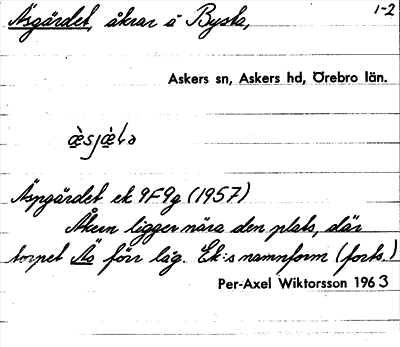 Äsgärdet, åkrar å Bysta, 1-2
Askers sn, Askers hd, Örebro län.
Äspgärdet ek 9F9g (1957)
Åkern ligger nära den plats, där
torpet Äs förr låg. Ek:s namnform (forts.)
Per-Axel Wiktorsson 1963